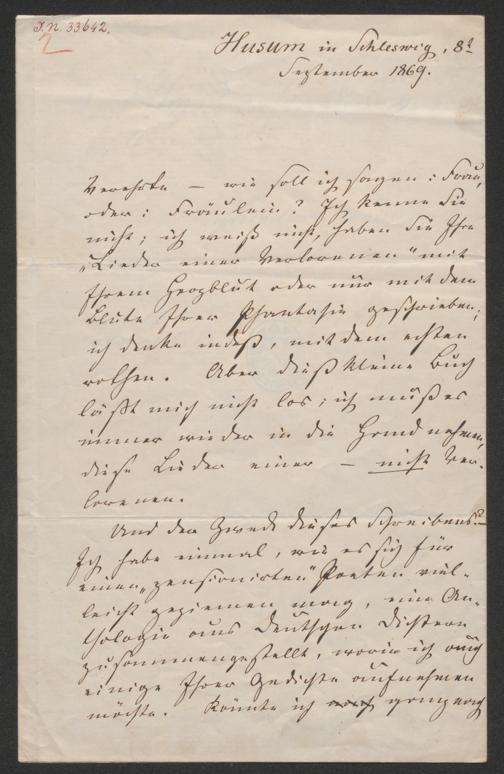 J.N. 33642.
2
Husum in Schleswig, 8t
September 1869.
Verehrte — wie soll ich sagen: Frau,
oder: Fräulein? Ich kenne Sie
nicht; ich weiß nicht, haben Sie Ihre
„Lieder einer Verlorenen" mit
Ihrem Herzblut oder nur mit dem
Blute Ihrer Phantasie geschrieben;
ich denke indeß, mit dem echten
rothen. Aber dieß kleine Buch
läßt mich nicht los; ich muß es
immer wieder in die Hand nehmen,
diese Lieder einer — nicht Ver-
lorenen.
Und der Zweck dieses Schreibens? —
Ich habe einmal, wie es sich für
einen „pensionirten" Poeten viel-
leicht geziemen mag, eine An-
thologie aus deutschen Dichtern
zusammengestellt, worin ich auch
einige Ihrer Gedichte aufnehmen
möchte. Könnte ich noch